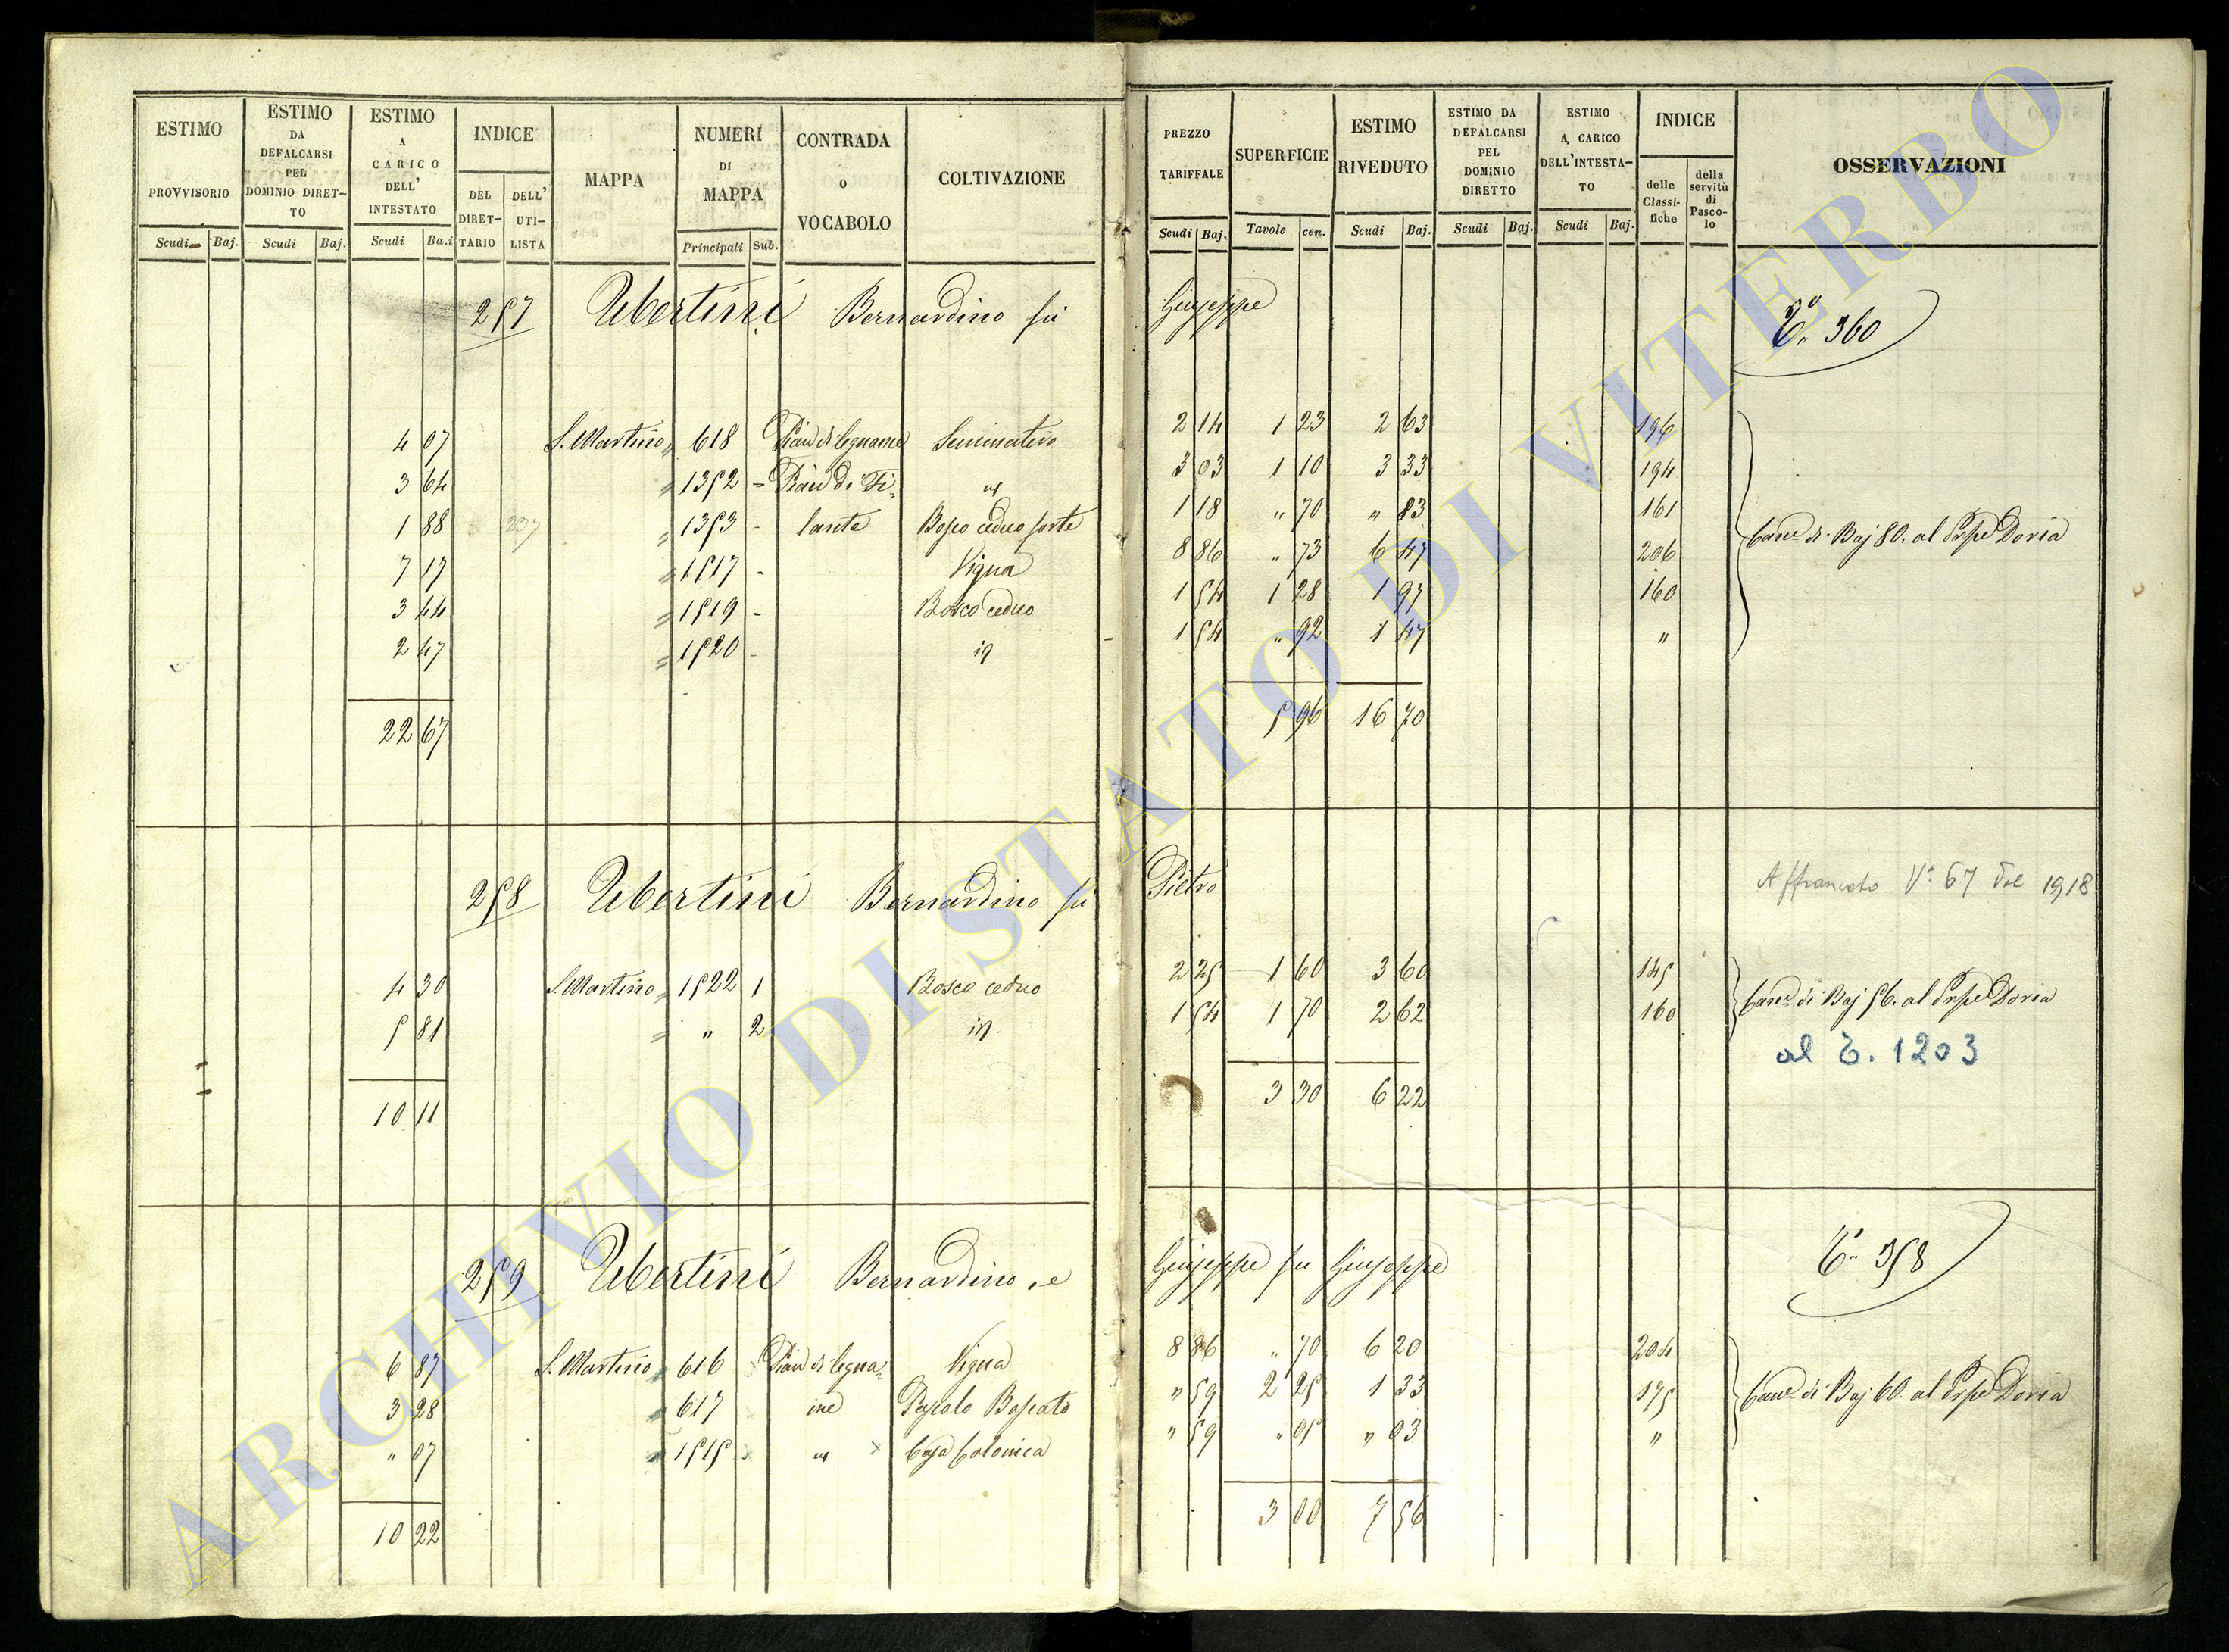 ESTIMO PROVVISORIO Scudi Baj.
ESTIMO DA DEFALCARSI PEL DOMINIO DIRETTO Scudi Baj.
ESTIMO A CARICO DELL' INTESTATO Scudi Ba.i
INDICE DEL DIRETTARIO DELL' UTILISTA
MAPPA
NUMERI DI MAPPA Principali Sub.
CONTRADA o VOCABOLO
COLTIVAZIONE
PREZZO TARIFFALE Scudi Baj.
SUPERFICIE Tavole cen.
ESTIMO RIVEDUTO Scudi Baj.
ESTIMO DA DEFALCARSI PEL DOMINIO DIRETTO Scudi Baj.
ESTIMO A CARICO DELL'INTESTATO Scudi Baj.
INDICE delle Classifiche della servitù di Pascolo
OSSERVAZIONI
257 Ubertini Bernardino fu Giuseppe 360
4 07 S. Martino 618 Pian di legname Seminativo 2 14 1 23 2 63 196
3 64 " 1352 - Pian di Fi= 3 03 1 10 3 33 194
1 88 237 " 1353 - lante Bosco ceduo forte 1 18 " 70 " 83 161
Baj 80. al Prpe Doria
7 17 " 1517 - Vigna 8 86 " 73 6 47 206
3 44 " 1519 - Bosco ceduo 1 54 1 28 1 97 160
2 47 " 1520 - id 1 54 " 92 1 47 "
22 67 5 96 16 70
258 Ubertini Bernardino fu Pietro
Affrancato V. 67 del 1918
4 30 S. Martino 1522 1 Bosco ceduo 2 25 1 60 3 60 145
di Baj 56. al Prpe Doria
5 81 " " 2 id 1 54 1 70 2 62 160
al T. 1203
10 11 3 30 6 22
259 Ubertini Bernardino, e Giuseppe fu Giuseppe 358
6 87 S. Martino 616 Pian di legna= Vigna 8 86 " 70 6 20 204
3 28 617 me Pascolo Boscato " 59 2 25 1 33 175
di Baj 60. al Prpe Doria
" 07 1515 Casa Colonica " 59 " 05 " 03 "
10 22 3 00 7 56
ARCHIVIO DI STATO DI VITERBO